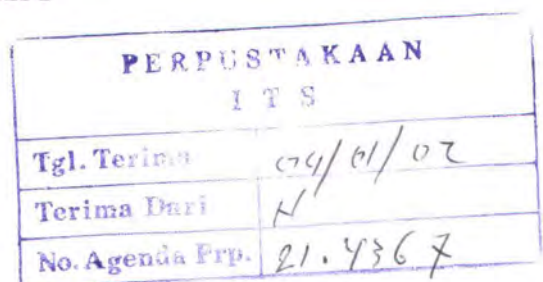 PERPUSTAKAAN
I T S
Tgl. Terima 04/01/02
Terima Dari H
No. Agenda Prp. 21.4367